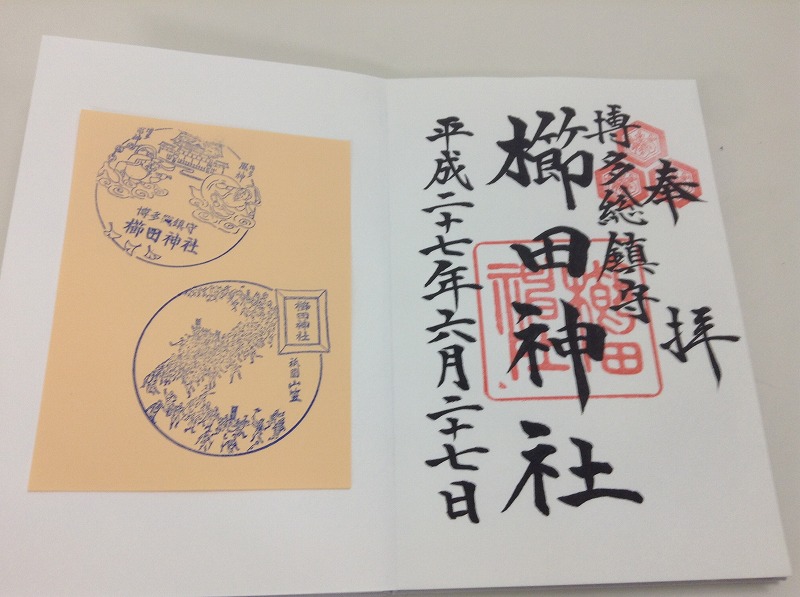 奉拝
博多総鎮守
櫛田神社
平成二十七年六月二十七日
櫛田神社
博多総鎮守
櫛田神社
櫛田神社
祇園山笠